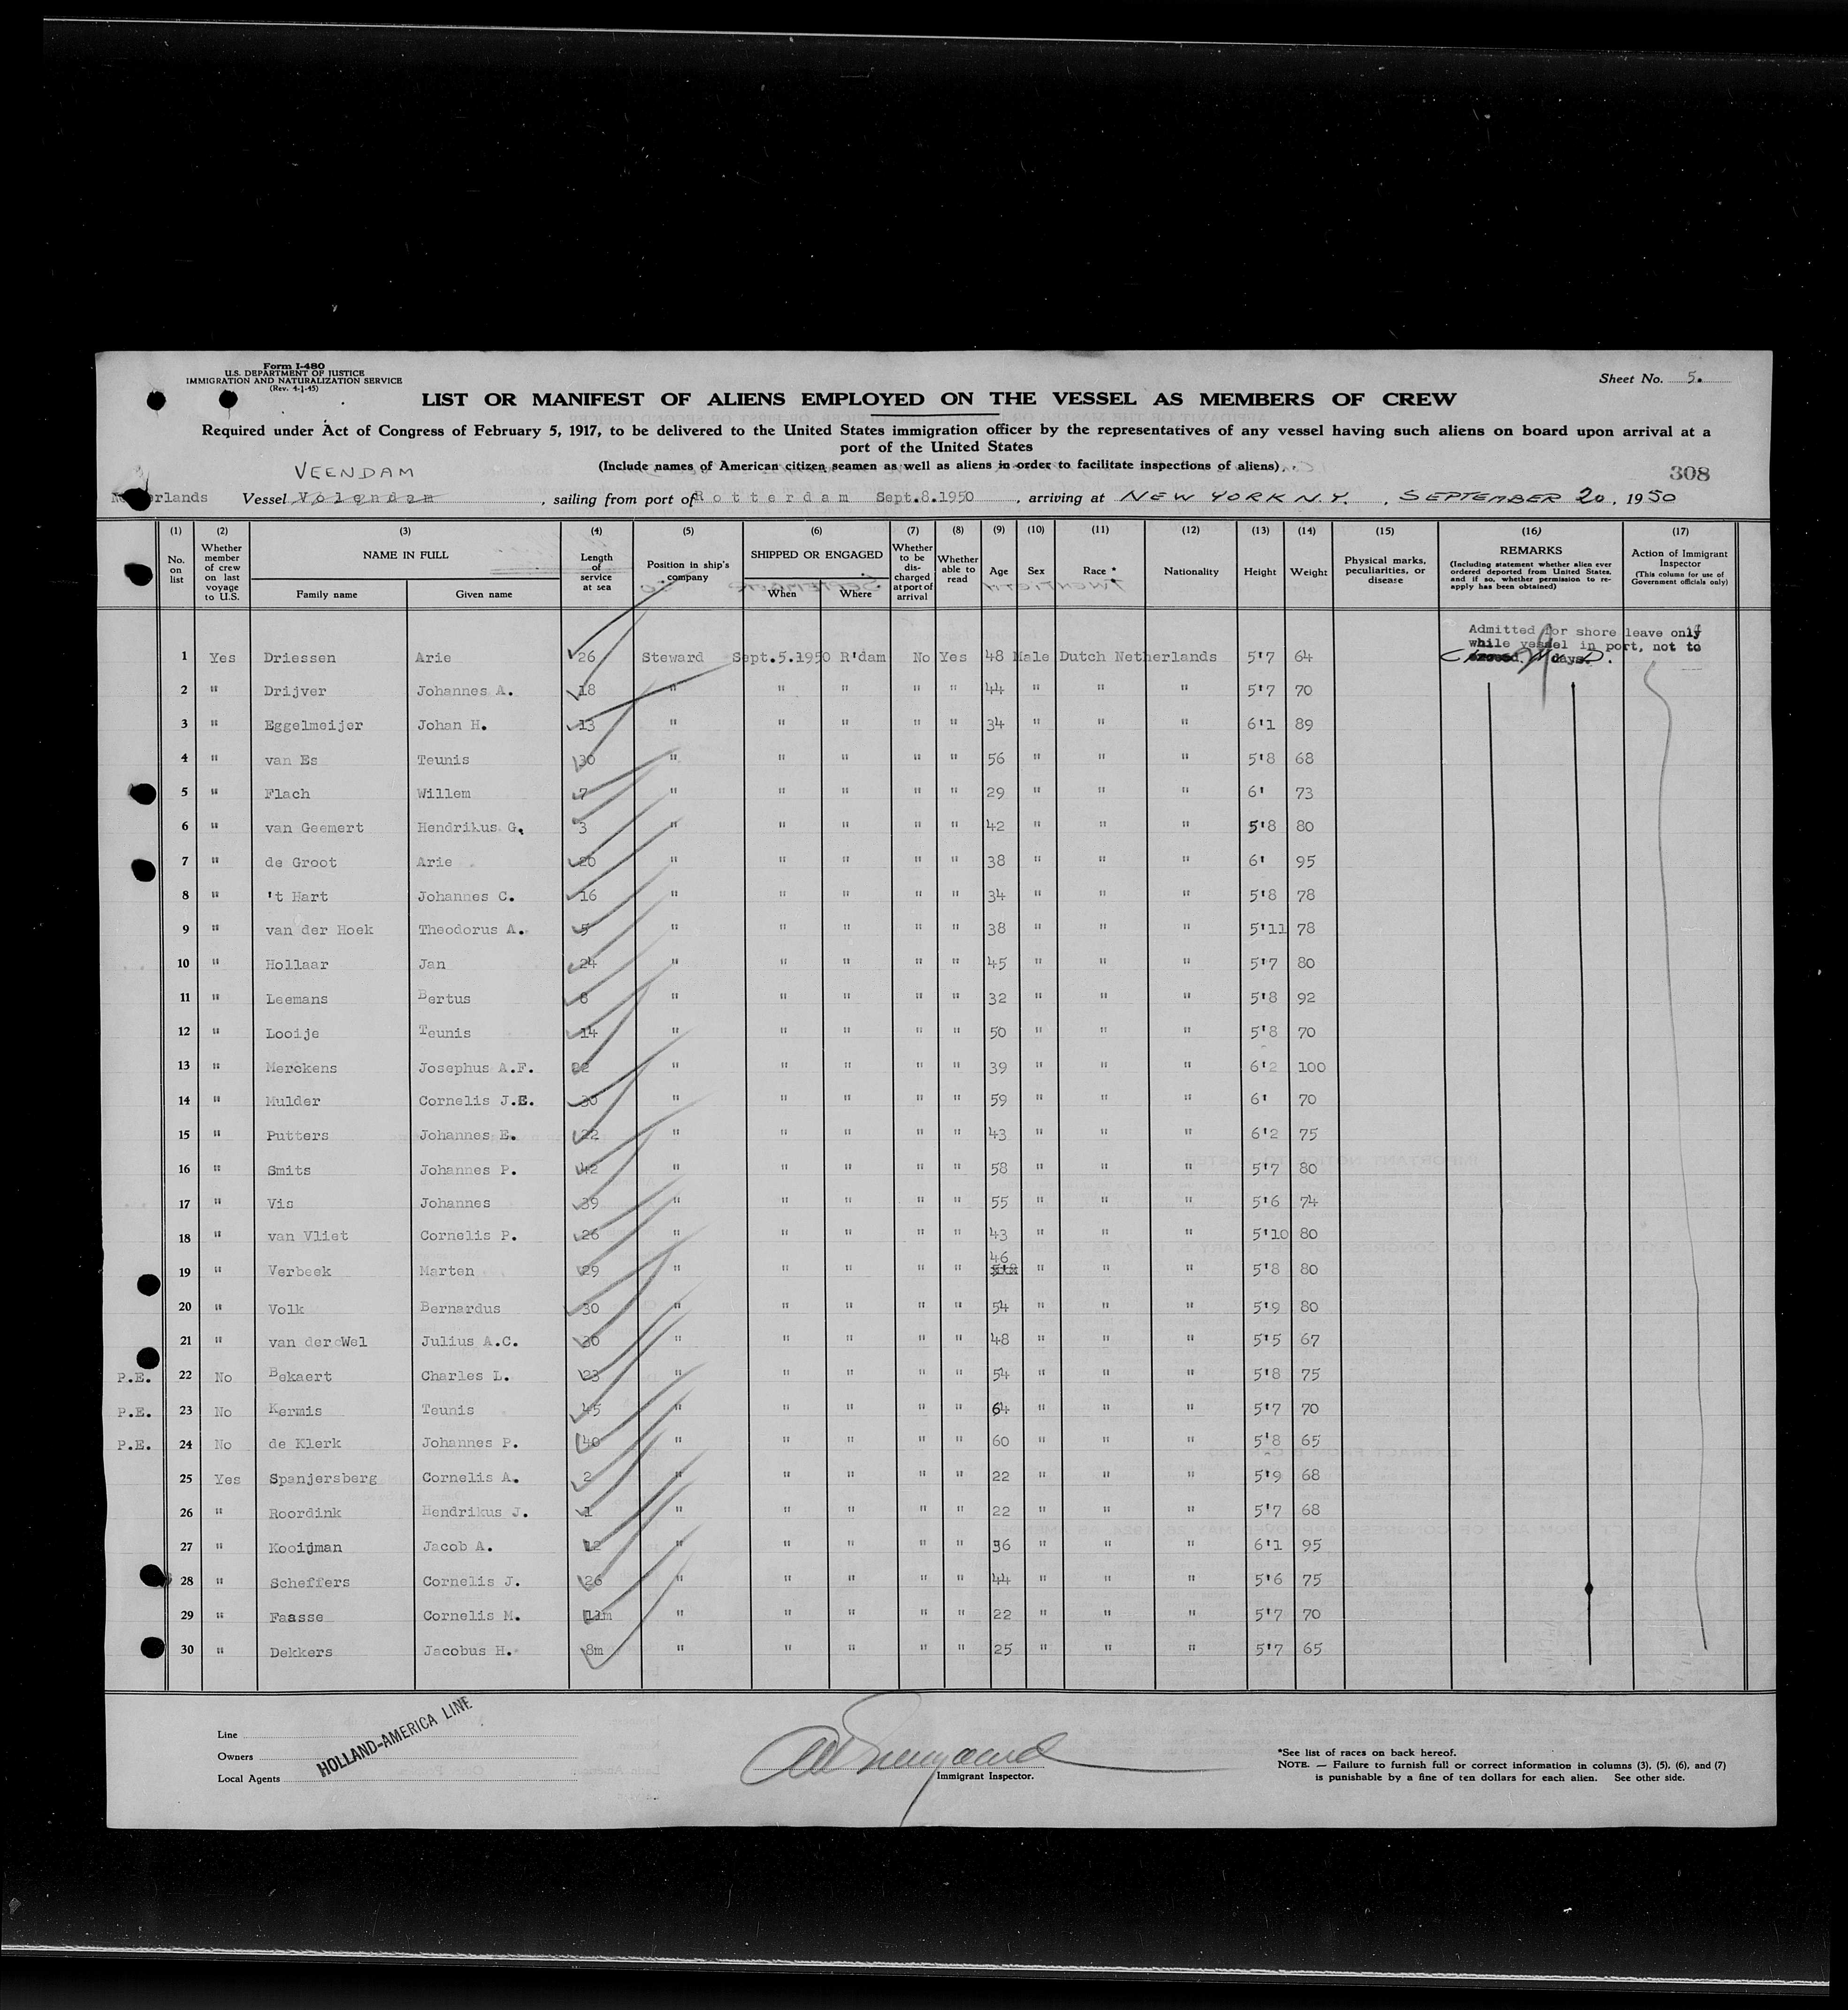 Form I-480
U.S. DEPARTMENT OF JUSTICE
IMMIGRATION AND NATURALIZATION SERVICE
(Rev. 4-1-45)
Sheet No. 5.
LIST OR MANIFEST OF ALIENS EMPLOYED ON THE VESSEL AS MEMBERS OF CREW
Required under Act of Congress of February 5, 1917, to be delivered to the United States immigration officer by the representatives of any vessel having such aliens on board upon arrival at a
port of the United States
(Include names of American citizen seamen as well as aliens in order to facilitate inspections of aliens)
308
VEENDAM
Netherlands Vessel Volendam, sailing from port of Rotterdam Sept.8.1950, arriving at NEW YORK N.Y., SEPTEMBER 20, 1950
(1) (2) (3) (4) (5) (6) (7) (8) (9) (10) (11) (12) (13) (14) (15) (16) (17)
No. on list
Whether member of crew on last voyage to U.S.
NAME IN FULL
Family name Given name
Length of service at sea
Position in ship's company
SHIPPED OR ENGAGED
When Where
Whether to be discharged at port of arrival
Whether able to read
Age
Sex
Race *
Nationality
Height
Weight
Physical marks, peculiarities, or disease
REMARKS
(Including statement whether alien ever ordered deported from United States, and if so, whether permission to reapply has been obtained)
Action of Immigrant Inspector
(This column for use of Government officials only)
Admitted for shore leave only
while vessel in port, not to
exceed days.
1 Yes Driessen Arie 26 Steward Sept.5.1950 R'dam No Yes 48 Male Dutch Netherlands 5'7 64
2 " Drijver Johannes A. 18 " " " " " 44 " " " 5'7 70
3 " Eggelmeijer Johan H. 13 " " " " " 34 " " " 6'1 89
4 " van Es Teunis 30 " " " " " 56 " " " 5'8 68
5 " Flach Willem 7 " " " " " 29 " " " 6' 73
6 " van Geemert Hendrikus G. 3 " " " " " 42 " " " 5'8 80
7 " de Groot Arie 20 " " " " " 38 " " " 6' 95
8 " 't Hart Johannes C. 16 " " " " " 34 " " " 5'8 78
9 " van der Hoek Theodorus A. 5 " " " " " 38 " " " 5'11 78
10 " Hollaar Jan 24 " " " " " 45 " " " 5'7 80
11 " Leemans Bertus 8 " " " " " 32 " " " 5'8 92
12 " Looije Teunis 14 " " " " " 50 " " " 5'8 70
13 " Merckens Josephus A.F. 22 " " " " " 39 " " " 6'2 100
14 " Mulder Cornelis J.E. 30 " " " " " 59 " " " 6' 70
15 " Putters Johannes E. 22 " " " " " 43 " " " 6'2 75
16 " Smits Johannes P. 42 " " " " " 58 " " " 5'7 80
17 " Vis Johannes 39 " " " " " 55 " " " 5'6 74
18 " van Vliet Cornelis P. 26 " " " " " 43 " " " 5'10 80
19 " Verbeek Marten 29 " " " " " 46 " " " 5'8 80
20 " Volk Bernardus 30 " " " " " 54 " " " 5'9 80
21 " van der Wel Julius A.C. 30 " " " " " 48 " " " 5'5 67
P.E. 22 No Bekaert Charles L. 23 " " " " " 54 " " " 5'8 75
P.E. 23 No Kermis Teunis 45 " " " " " 64 " " " 5'7 70
P.E. 24 No de Klerk Johannes P. 40 " " " " " 60 " " " 5'8 65
25 Yes Spanjersberg Cornelis A. 2 " " " " " 22 " " " 5'9 68
26 " Roordink Hendrikus J. 1 " " " " " 22 " " " 5'7 68
27 " Kooijman Jacob A. 12 " " " " " 36 " " " 6'1 95
28 " Scheffers Cornelis J. 26 " " " " " 44 " " " 5'6 75
29 " Faasse Cornelis M. 11m " " " " " 22 " " " 5'7 70
30 " Dekkers Jacobus H. 8m " " " " " 25 " " " 5'7 65
Line
Owners
Local Agents
HOLLAND-AMERICA LINE
Immigrant Inspector.
*See list of races on back hereof.
NOTE. — Failure to furnish full or correct information in columns (3), (5), (6), and (7)
is punishable by a fine of ten dollars for each alien. See other side.